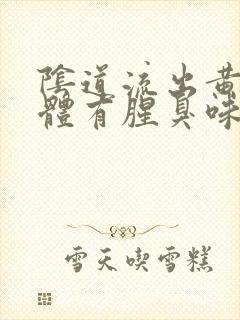 陰道流出黃
體有腥臭味
雪天喫雪糕